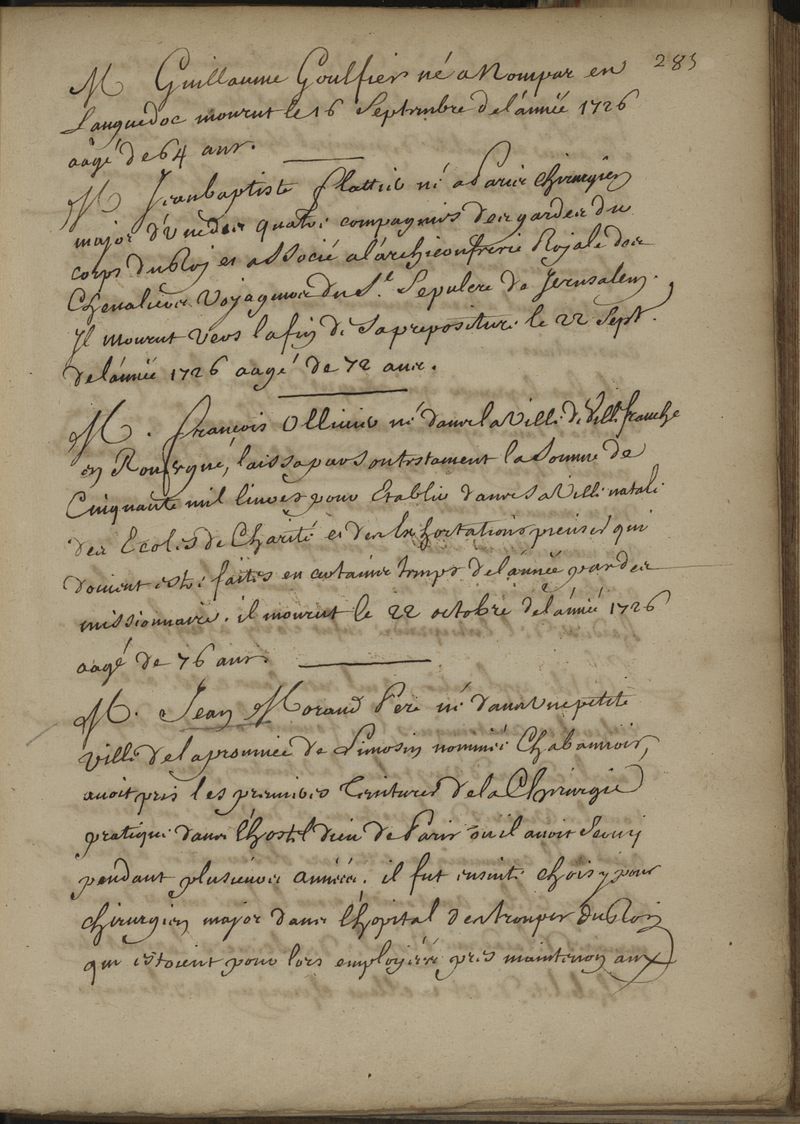 285
M Guillaume Goulfier né a Nompar en
Languedoc mourut le 16 Septembre de l'année 1726
aâgé de 64 ans.
M Jean baptiste né a Paris chirurgien
major d'une des quatre compagnies des gardes du
corps du Roj et associé a l'archiconfrerie Rojale des
Chevaliers Voyageurs du St Sepulcre de Jerusalem.
Il mourut vers la fin de sa prepositure le 22 Sept.
de l'année 1726 aagé de 72 ans.
M. François Ollivie né dans la Ville de Villefranche
en Rouergue, laissa par son testament la somme de
Cinquante mil livres pour Etablir dans sa Ville natale
des Ecoles de Charité et des Exhortations pieuses qui
doivent estre faites en certains temps de l'année par des
missionnaires. il mourut le 22 octobre de l'année 1726
aagé de 76 ans.
M. Jean Morand Pere né dans une petite
ville de la province de Limosin nommée Chabannois,
avoit pris les premieres teintures de la Chirurgie
pratique dans l'hostel dieu de Paris ou il avoit servy
pendant plusieurs années. il fut ensuite choisy pour
chirurgien major dans l'hopital des troupes du Roy
qui estoient pour lors employées pres maintenon aux